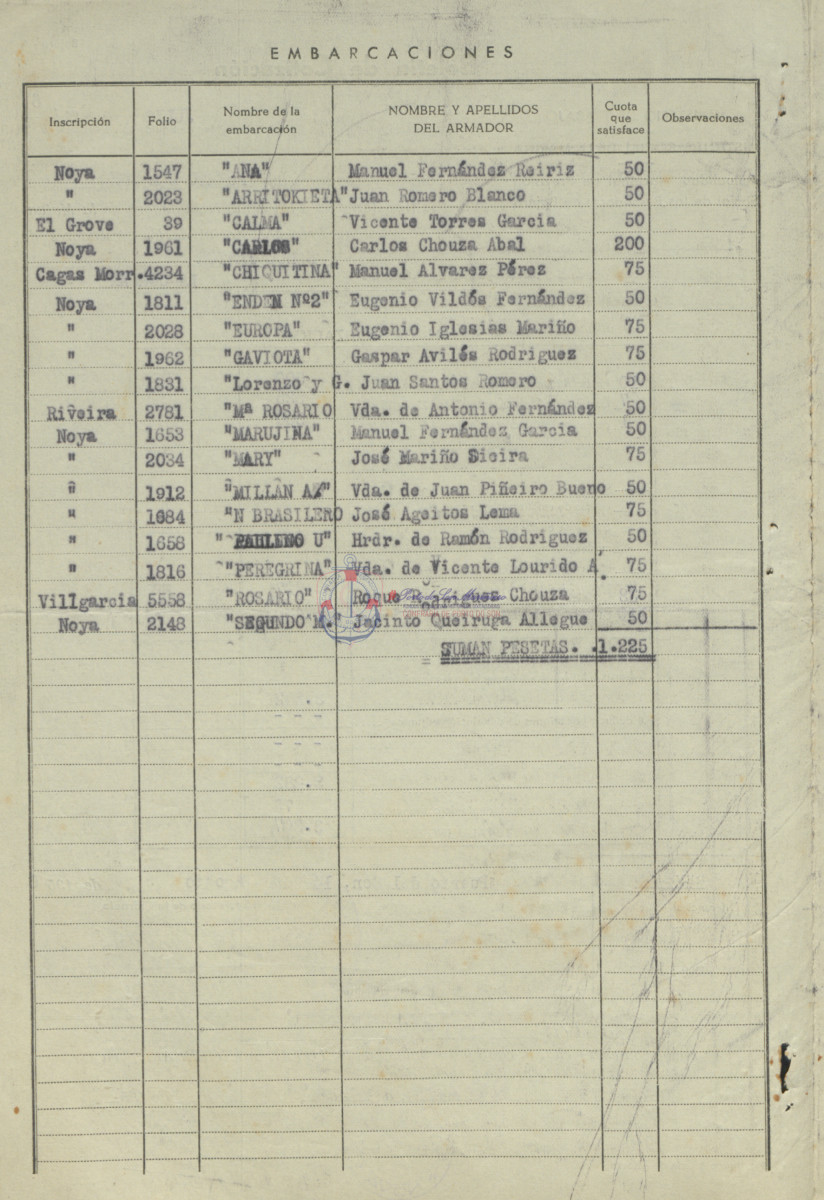 EMBARCACIONES
Inscripción Folio Nombre de la embarcación NOMBRE Y APELLIDOS DEL ARMADOR Cuota que satisface Observaciones
Noya 1547 "ANA" Manuel Fernández Reiriz 50
" 2023 "ARRITOKIETA" Juan Romero Blanco 50
El Grove 39 "CALMA" Vicente Torres Garcia 50
Noya 1961 "CARLOS" Carlos Chouza Abal 200
Cagas Morr.4234 "CHIQUITINA" Manuel Alvarez Pérez 75
Noya 1811 "ENDEN Nº2" Eugenio Vildós Fernández 50
" 2028 "EUROPA" Eugenio Iglesias Mariño 75
" 1962 "GAVIOTA" Gaspar Avilés Rodriguez 75
" 1831 "Lorenzo y G. Juan Santos Romero 50
Riveira 2781 "Mª ROSARIO Vda. de Antonio Fernández 50
Noya 1653 "MARUJINA" Manuel Fernández Garcia 50
" 2034 "MARY" José Mariño Sieira 75
" 1912 "MILLÁN AZ" Vda. de Juan Piñeiro Bueno 50
" 1684 "N BRASILERO José Ageitos Lema 75
" 1658 " PAULINO U" Hrdr. de Ramón Rodriguez 50
" 1816 "PEREGRINA" Vda. de Vicente Lourido A. 75
Villgarcia 5558 "ROSARIO" Roque Rodriguez Chouza 75
Noya 2148 "SEGUNDO M." Jacinto Queiruga Allegue 50
SUMAN PESETAS. .1.225